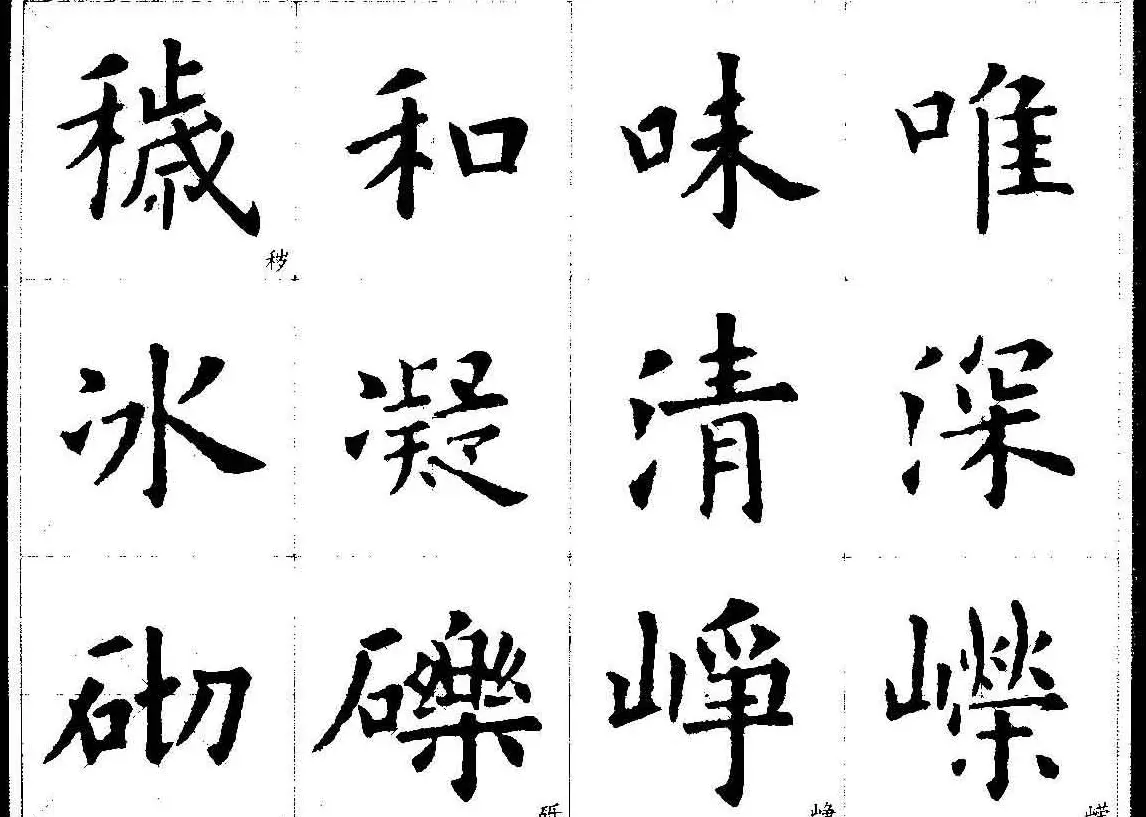 穢和味唯
秽
冰凝清深
砌礫崢嶸
砾 峥 嵘